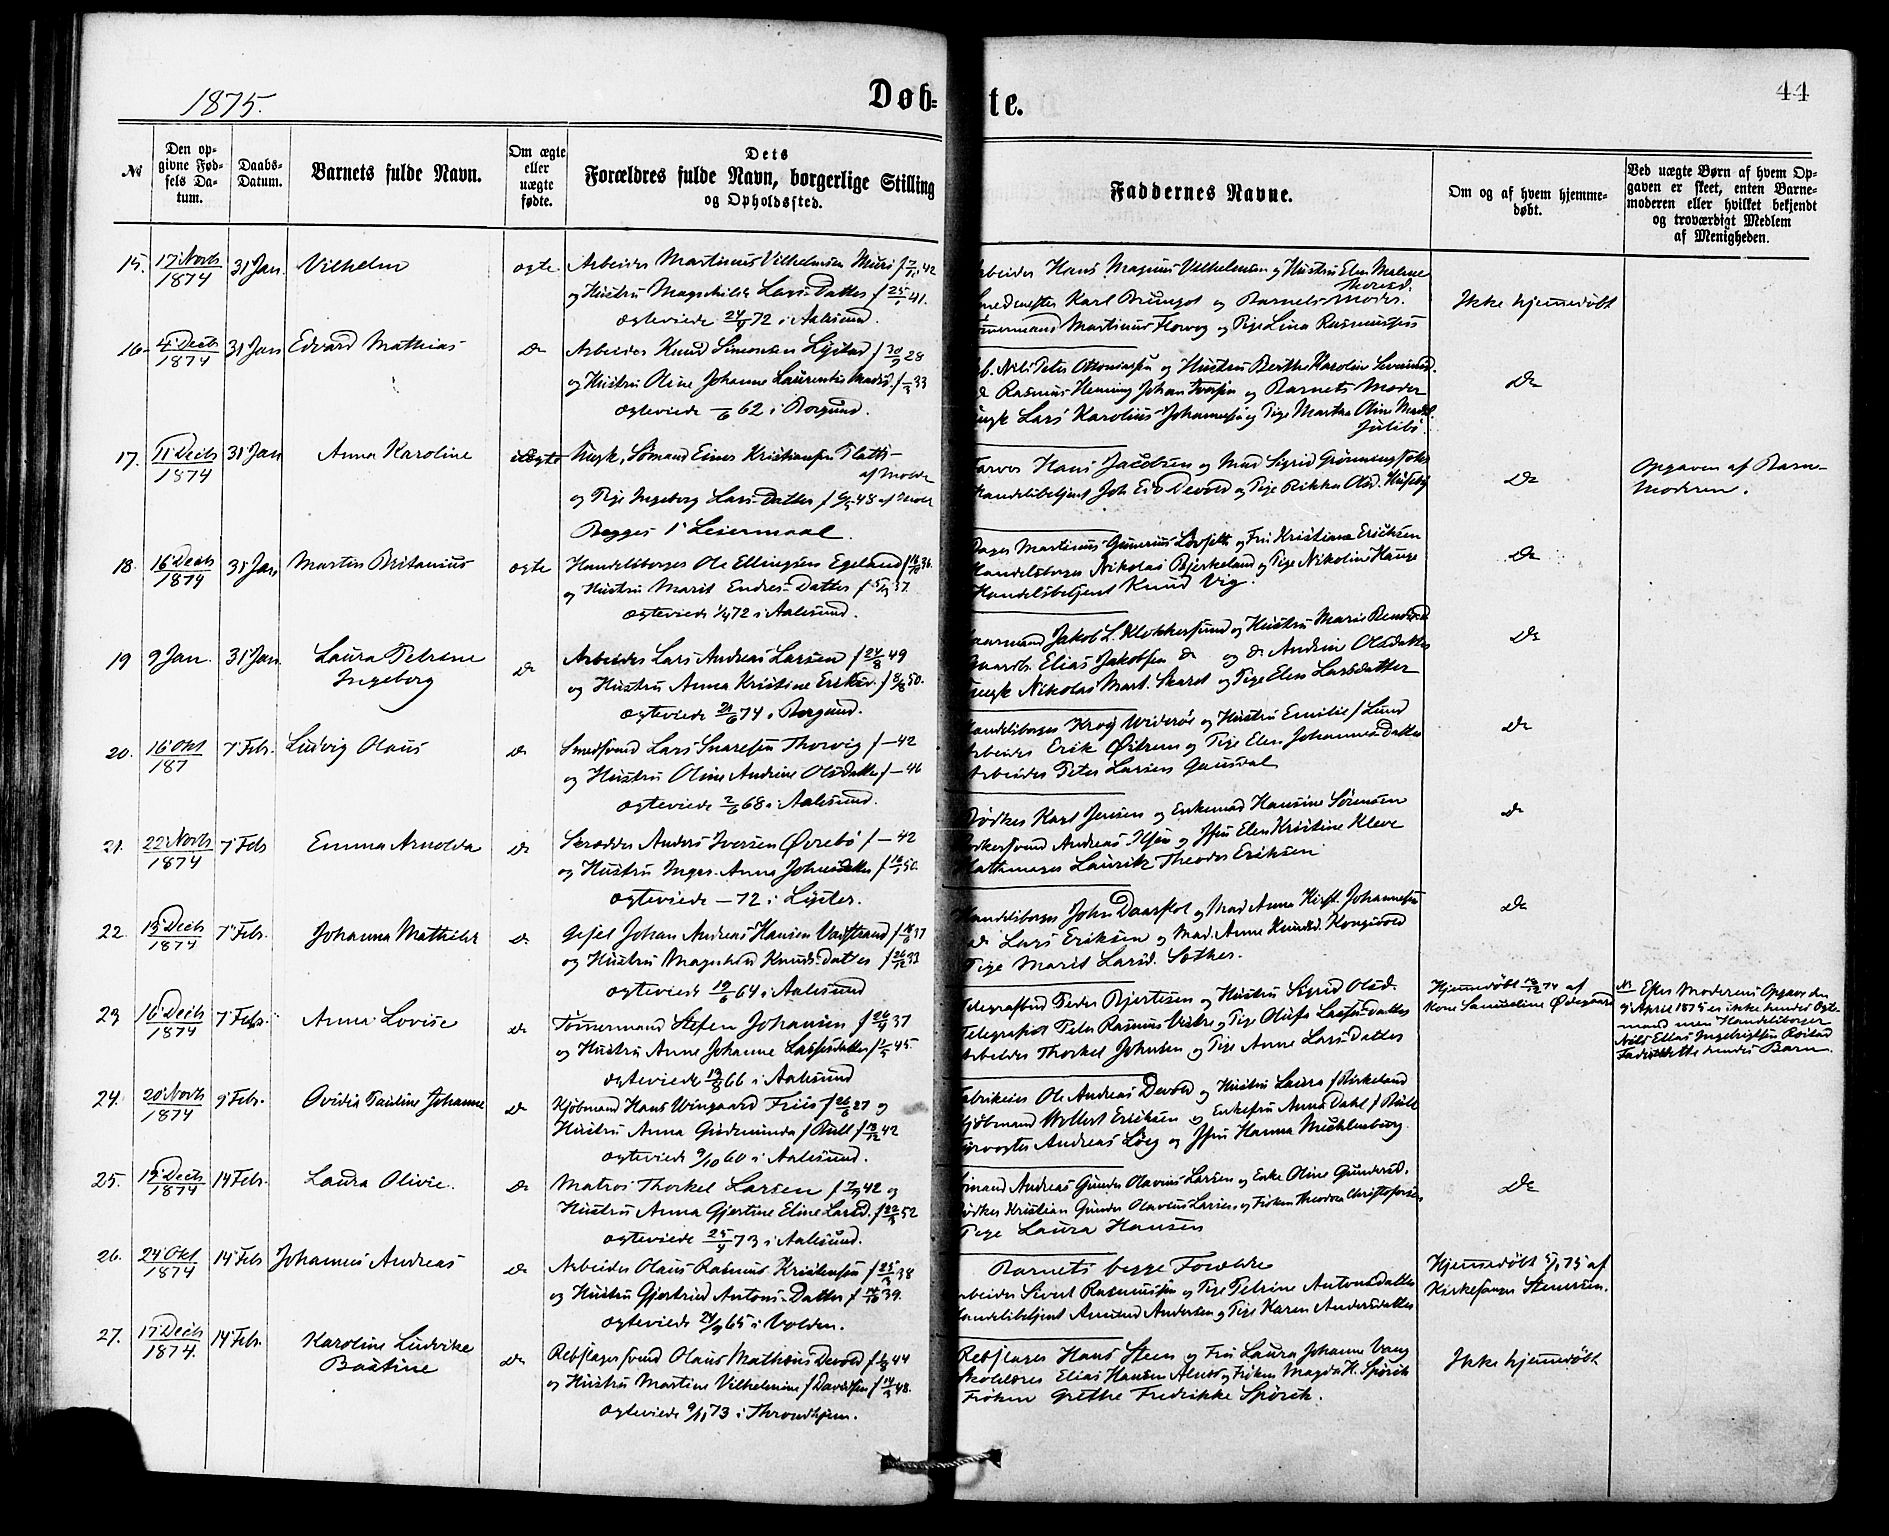 1875.
Døbte.
44
No
Den opgivne Fødsels Datum.
Daabs-Datum.
Barnets fulde Navn.
Om ægte eller uægte fødte.
Dets Forældres fulde Navn, borgerlige Stilling og Opholdssted.
Faddernes Navne.
Om og af hvem hjemmedøbt.
Ved uægte Børn af hvem Opgaven er skeet, enten Barnemoderen eller hvilket bekjendt og troværdigt Medlem af Menigheden.
15. 17 Novb 1874 31 Jan. Vilhelm ægte
Arbeider Martinus Vilhelmsen f 42
og Hustru Lars-Datter f 25/1 41.
ægteviede 24/9 72 i Aalesund.
Arbeider Hans Magnus Vilhelmsen og Hustru Elen Malene
Karl Brungot og Barnets Moder.
Martinus Flovog og Pige Lina Rasmussen
Ikke hjemmedøbt
16. 4 Decb 1874 31 Jan Edvard Mathias Do
Arbeider Knud Simonsen f 30/9 28
og Hustru Oline Johanne Laurentse f 1/3 33
ægteviede 62 i Borgund.
Nils Peter og Hustru Berthe Karoline
Rasmus Henning Johan Iversen og Barnets Moder
Ungk Lars Karolius Johannesen og Pige Martha Oline
Do
17. 11 Decb 1874 31 Jan Anna Karoline uægte
Ungk, Sømand Einer Kristiansen
af Molde
og Pige Ingeborg Lars-Datter f 48 af Molde
Begges 1' Leiermaal.
Farver Hans Jacobsen og Mad Sigrid
Handelsbetjent Joh E. Devold og Pige Rikka Olsd.
Do
Opgaven af Barnemoderen.
18. 16 Decb 1874 31 Jan Martin Britanius ægte
Handelsborger Ole Ellingsen Egeland f 36
og Hustru Marit Endres-Datter f 37.
ægteviede 1/4 72 i Aalesund.
Martinus Gunerius og Fru Kristiane Ericksen
Handelsborger Nikolai Bjerkeland og Pige Nikoline Hauge
Handelsbetjent Knud Vig.
Do
19 9 Jan. 31 Jan. Laura Petrine
Ingeborg Do
Arbeider Lars Andreas Larsen f 24/8 49
og Hustru Anna Kristine Eriksd. f 8/8 50.
ægteviede 21/6 74 i Borgund.
Gaarmand Jakob L. Klokkersund og Hustru Marie
Gaardb. Elias Jakobsen do og do Andrine Olsdatter
Ungk Nikolai Mart. Skaret og Pige Elen Larsdatter
Do
20. 16 Okt 187 7 Feb. Ludvig Olaus Do
Smedsvend Lars Thorvig f — 42
og Hustru Oline Andrine Olsdatter f — 46
ægteviede 2/6 68 i Aalesund.
Handelsborger Krog Widerøe og Hustru Emilie f Lund
Arbeider Erik og Pige Elen Johannes Datter
Arbeider Peter Larsen Gausdal
Do
21. 22 Novb 1874 7 Feb Emma Arnolda Do
Skrædder Anders Iversen Øvrebø f — 42
og Hustru Inger Anna f 50.
ægteviede — 72 i Lyster.
Bødker Karl Jensen og Enkemad Hansine Sørensen
Andreas og Jfru Elen Kristine Kleve
Hattemager Laurits Theodor Eriksen
Do
22. 13 Decb 1874 7 Feb. Johanna Mathilde Do
Johan Andreas Hansen f 37
og Hustru Knuds-Datter f 26/12 33
ægteviede 19/6 64 i Aalesund
Handelsborger John Daarflot og Mad Anna Kirst. Johannesen
Do Lars Eriksen og Mad. Anne Knudsd. Kongsvold
Pige Marit Larsd. Sæther.
Do
23 16 Decb 1874 7 Feb. Anna Lovise Do
Tømermand Stefen Johansen f 26/4 37
og Hustru Anne Johanne Lassesdatter f 1/5 45.
ægteviede 66 i Aalesund
Telegrafbud Peder og Hustru Sigrid Olsd.
Telegrafist Peter Rasmus og Pige Olufa Lasses-Datter
Arbeider Thorkel Johnsen og Pige Anne Lars-Datter
Hjemmedøbt 74 af
Kone Samueline Ødegaard
NB Efter Moderens Opgave den
9 April 1875 er ikke hendes Ægtemand men Handelsborger
Nils Elias Ingebrigtsen Røstad
Fader til dette hendes Barn.
24. 20 Novb 1874 9 Feb. Ovidia Pauline Johanne Do
Kjøbmand Hans Wingaard Friis f 26/6 27 og
Hustru Anna Gudmunda f Bull f 13/12 42
ægteviede 9/10 60 i Aalesund.
Fabrikeier Ole Andreas Devold og Hustru Laura f Birkeland
Kjøbmand Wollert Eriksen og Enkefru Anna Dahl f Bull
Andreas Løeg og Jfru Hanna Mechlenburg.
25. 19 Decb 1874 14 Feb. Laura Olivie. Do
Matros Thorkel Larsen f 7/9 42 og
Hustru Anna Gjertine Eline Larsd. f 22/3 52
ægteviede 25/4 73 i Aalesund.
Sømand Andreas Gunder Olavius Larsen og Enke Oline Gundersd.
Bødker Kristian Gunder Olavius Larsen og Frøken Theodora Christofersen
Pige Laura Hansen
Do
26. 24 Okt 1874 14 Feb Johannes Andreas Do
Arbeider Olaus Rasmus Kristensen f 25/3 38
og Hustru Gjertrud Antons-Datter f 39.
ægteviede 24/9 65 i Volden.
Barnets begge Forældre
Arbeider Sivert Rasmussen og Pige Petrine Antonsdatter
Handelsbetjent Amund Andersen og Pige Karen Andersdatter
Hjemmedøbt 5/1 75 af
Kirkesanger Stenersen.
27. 17 Decb 1874. 14 Feb. Karoline Ludvike
Bastine Do
Rebslagersvend Olaus Mathias Devold f 44
og Hustru Martine Vilhelmine f Davidsen f 14/3 48.
ægteviede 9/11 73 i Throndhjem.
Rebslager Hans Steen og Fru Laura Johanne Vang
Skolelærer Elias Hansen Alnes og Frøken Magda K. Spørck
Frøken Grethe Fredrikke Spørck.
Ikke hjemmedøbt